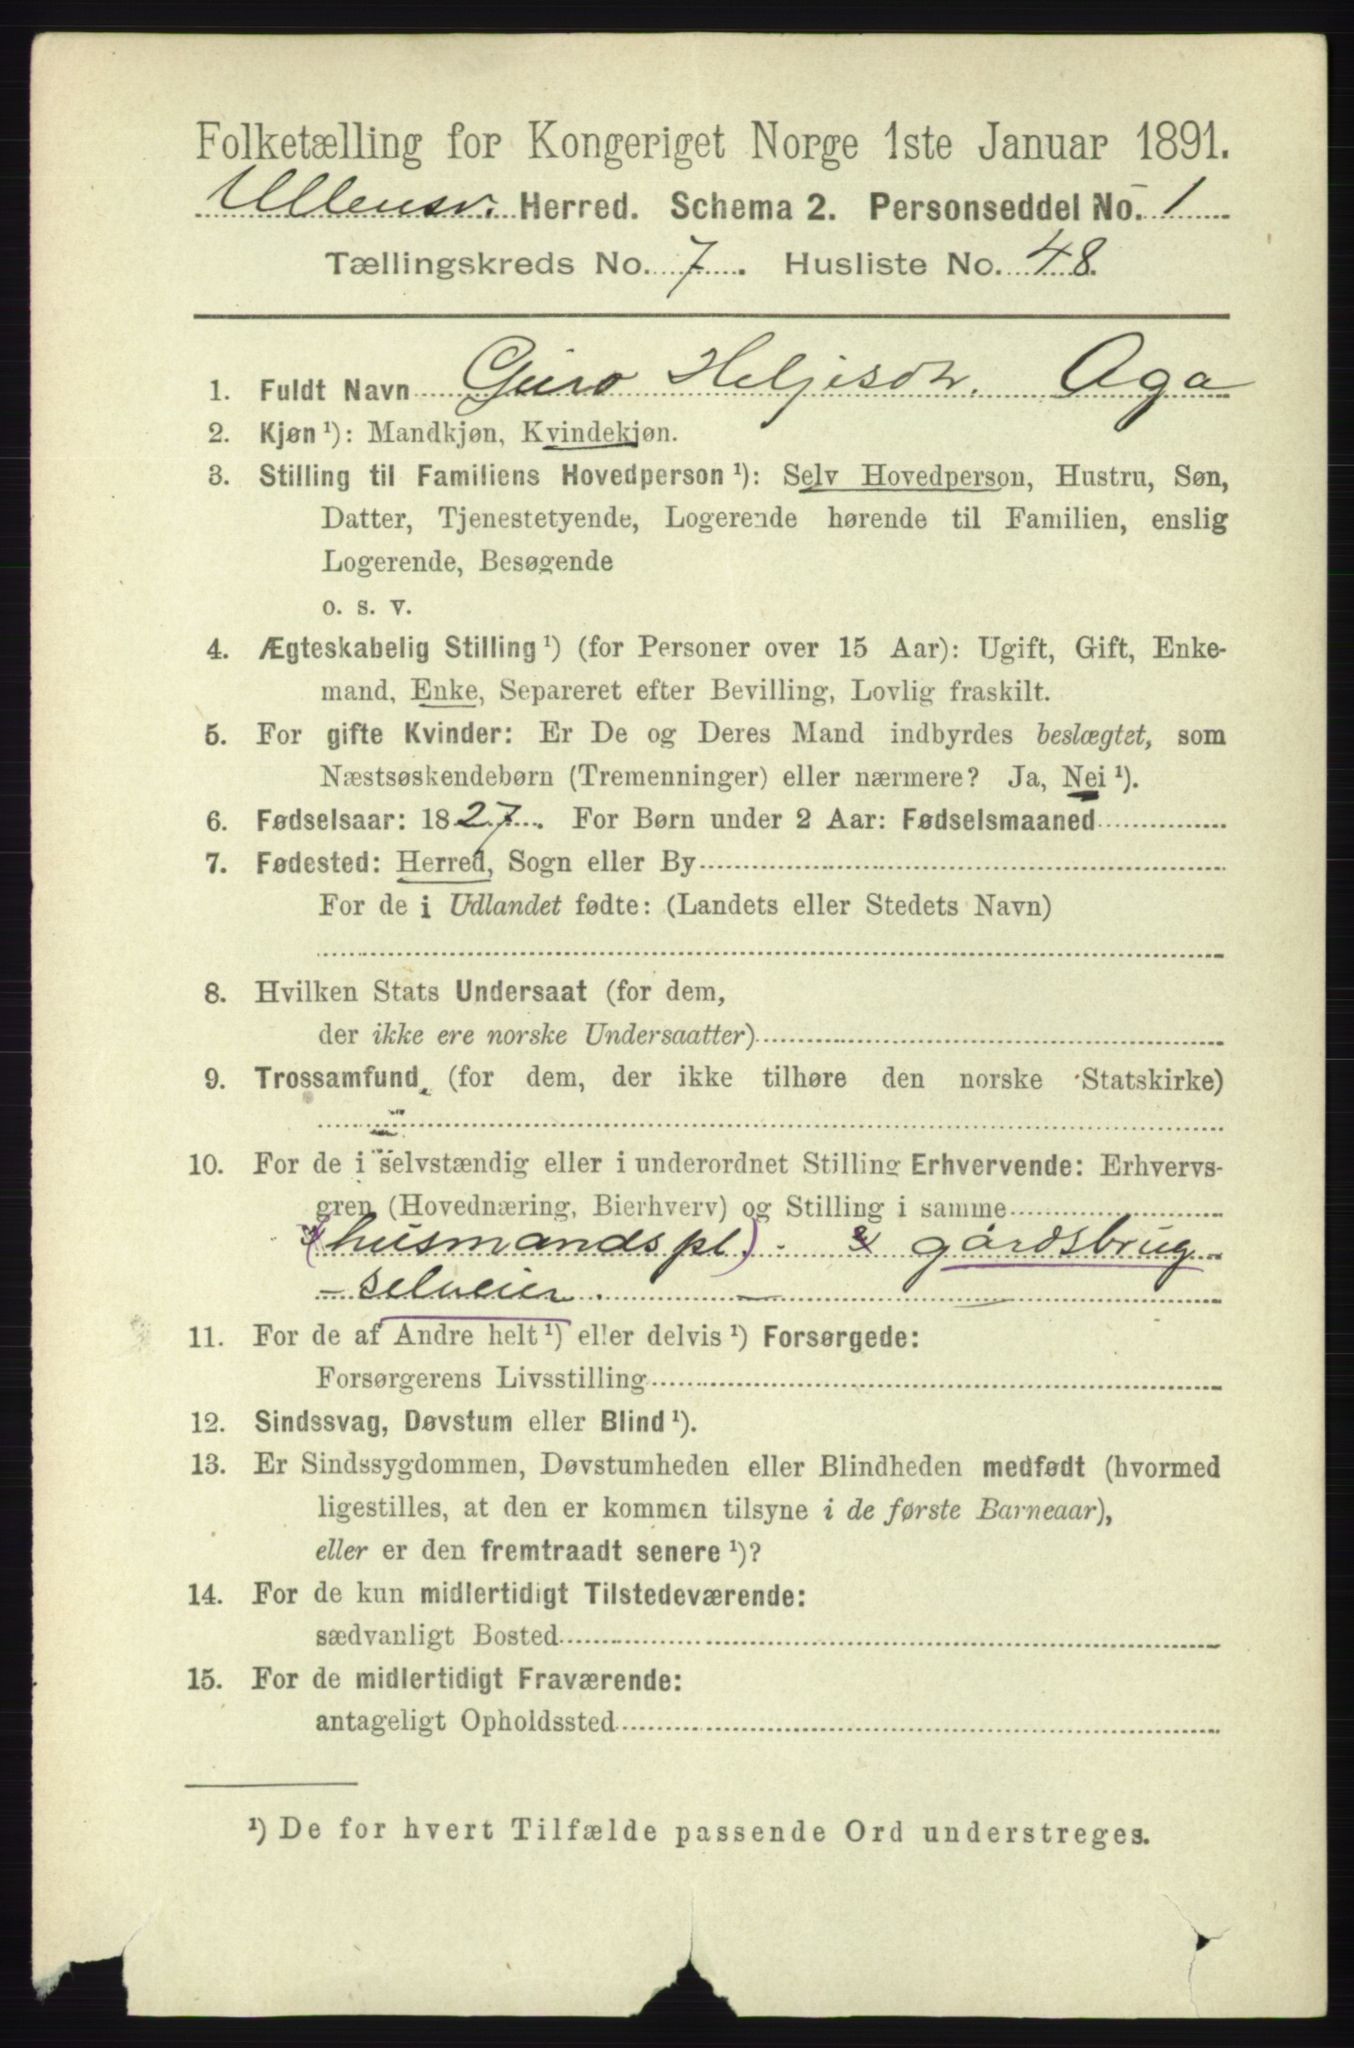 Folketælling for Kongeriget Norge 1ste Januar 1891.
Ullensv. Herred. Schema 2. Personseddel No. 1
Tællingskreds No. 7. Husliste No. 48.
1. Fuldt Navn Guro Heljesdtr. Aga
2. Kjøn ¹): Mandkjøn, Kvindekjøn.
3. Stilling til Familiens Hovedperson ¹): Selv Hovedperson, Hustru, Søn,
Datter, Tjenestetyende, Logerende hørende til Familien, enslig
Logerende, Besøgende
o. s. v.
4. Ægteskabelig Stilling ¹) (for Personer over 15 Aar): Ugift, Gift, Enke-
mand, Enke, Separeret efter Bevilling, Lovlig fraskilt.
5. For gifte Kvinder: Er De og Deres Mand indbyrdes beslægtet, som
Næstsøskendebørn (Tremenninger) eller nærmere? Ja, Nei ¹).
6. Fødselsaar: 1827. For Børn under 2 Aar: Fødselsmaaned
7. Fødested: Herred, Sogn eller By
For de i Udlandet fødte: (Landets eller Stedets Navn)
8. Hvilken Stats Undersaat (for dem,
der ikke ere norske Undersaatter)
9. Trossamfund (for dem, der ikke tilhøre den norske Statskirke)
10. For de i selvstændig eller i underordnet Stilling Erhvervende: Erhvervs-
gren (Hovednæring, Bierhverv) og Stilling i samme
(husmandspl). gårdsbrug
- selveier. -
11. For de af Andre helt ¹) eller delvis ¹) Forsørgede:
Forsørgerens Livsstilling
12. Sindssvag, Døvstum eller Blind ¹).
13. Er Sindssygdommen, Døvstumheden eller Blindheden medfødt (hvormed
ligestilles, at den er kommen tilsyne i de første Barneaar),
eller er den fremtraadt senere ¹)?
14. For de kun midlertidigt Tilstedeværende:
sædvanligt Bosted
15. For de midlertidigt Fraværende:
antageligt Opholdssted
¹) De for hvert Tilfælde passende Ord understreges.